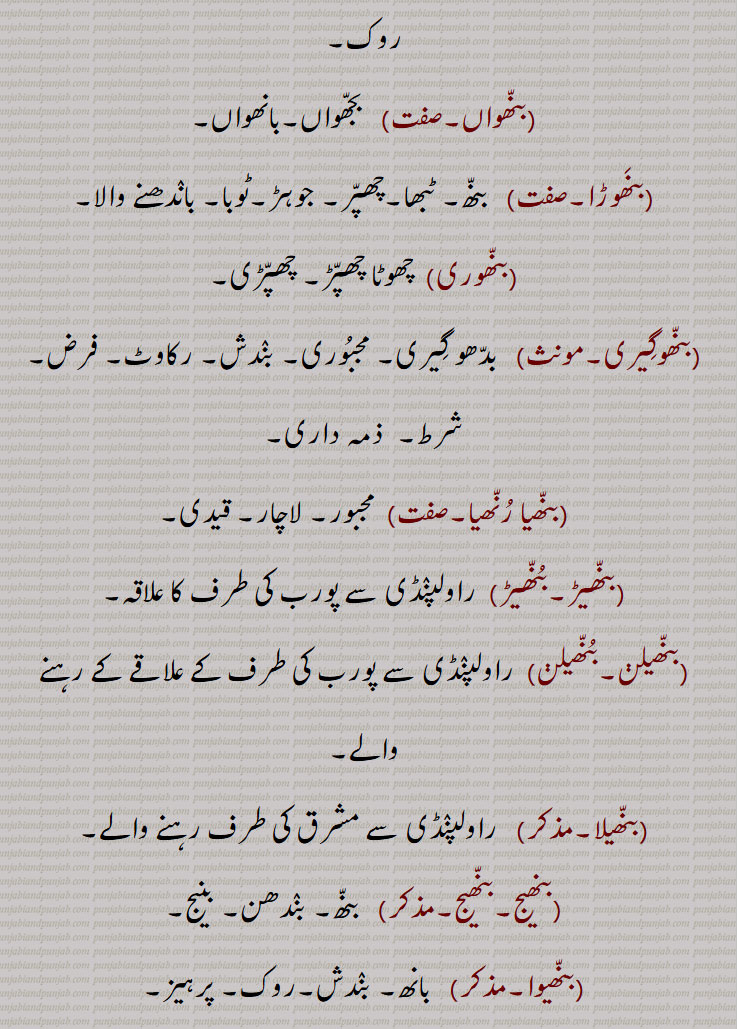 روک۔
(بنھّواں۔صفت) بجھّواں۔بانھواں۔
(بنھَوڑا۔صفت) بنھّ۔ ٹبھا۔چھپّر۔ جوہڑ۔ٹوبا۔ باندھنے والا۔
(بنھّوری) چھوٹا چھپّڑ۔ چھپّڑی۔
(بنھّوگِیری۔مونث) بدّھو گِیری۔ مجبُوری۔ بندش۔ رکاوٹ۔ فرض۔
شرط۔ ذمہ داری۔
(بنھّیا رُنھّیا۔صفت) مجبور۔ لاچار۔ قیدی۔
(بنھّیڑ۔بُنھّیڑ) راولپنڈی سے پورب کی طرف کا علاقہ۔
(بنھّیلن۔بُنھّیلن) راولپنڈی سے پورب کی طرف کے علاقے کے رہنے
والے۔
(بنھّیلا۔مذکر) راولپنڈی سے مشرق کی طرف رہنے والے۔
(بنھیج۔بنھّیج۔مذکر) بنھّ۔ بندھن۔ بنیج۔
(بنھّیوا۔مذکر) بانھ۔ بندش۔روک۔ پرہیز۔